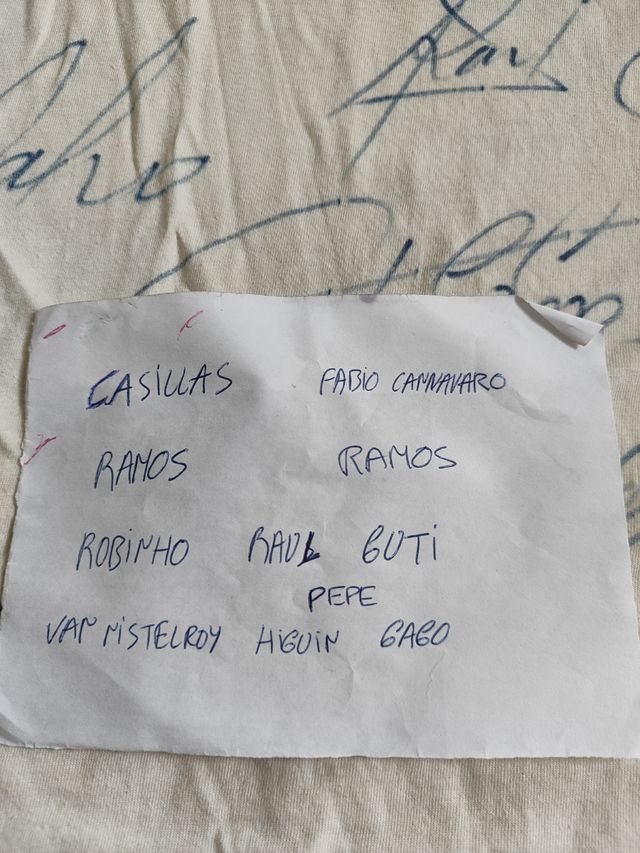 Raul
CASILLAS FABIO CANNAVARO
RAMOS RAMOS
ROBINHO RAUL GUTI
PEPE
VAN NISTELROY HIGUIN GAGO